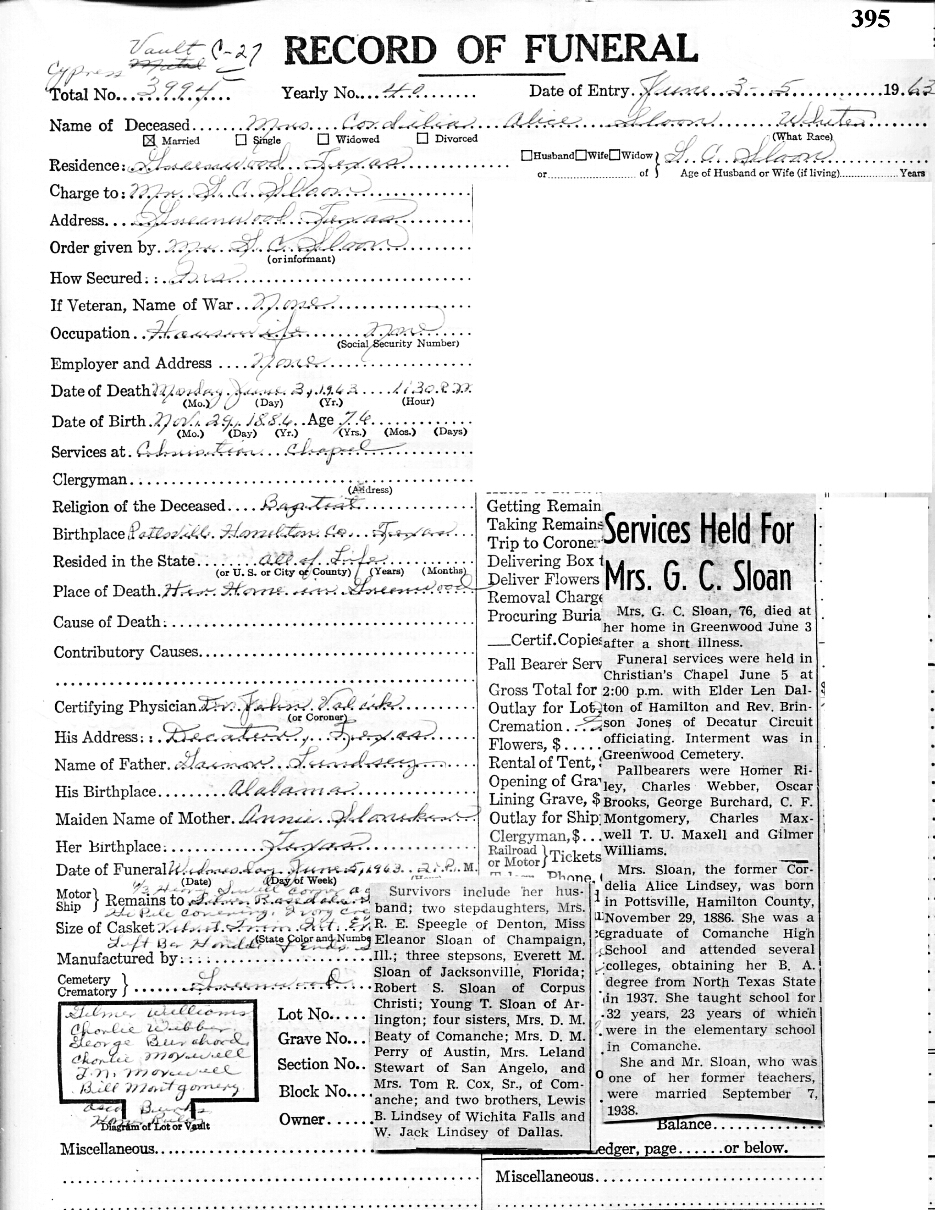 395
Vault C-27
Cypress Metal
RECORD OF FUNERAL
Total No. 3994 Yearly No. 40 Date of Entry June 3-5 1963
Name of Deceased Mrs Cordilia Alice Sloan White
(What Race)
☒ Married ☐ Single ☐ Widowed ☐ Divorced
Residence: Greenwood, Texas ☐Husband☐Wife☐Widow} G. C. Sloan
or of Age of Husband or Wife (if living) Years
Charge to: Mr. G C Sloan
Address Greenwood Texas
Order given by Mr G C Sloan
(or informant)
How Secured: : Ins
If Veteran, Name of War None
Occupation Housewife None
(Social Security Number)
Employer and Address None
Date of Death Monday June 3, 1963 1:30 P.M.
(Mo.) (Day) (Yr.) (Hour)
Date of Birth Nov. 29, 1886 Age 76
(Mo.) (Day) (Yr.) (Yrs.) (Mos.) (Days)
Services at Christian Chapel
Clergyman
(Address)
Religion of the Deceased Baptist
Birthplace Pottsville Hamilton Co. Texas
Resided in the State All of Life
(or U. S. or City of County) (Years) (Months)
Place of Death Her Home in Greenwood
Cause of Death:
Contributory Causes
Certifying Physician Dr. John
(or Coroner)
His Address: : Decatur, Texas
Name of Father Lindsey
His Birthplace Alabama
Maiden Name of Mother Annie
Her Birthplace: Texas
Date of Funeral Wednesday June 5, 1963 2: P. M.
(Date) (Day of Week)
Motor
Ship } Remains to
Size of Casket
(State Color and Numbe
Manufactured by: : :
Cemetery
Crematory } Greenwood
Gilmer Williams
Charlie Webber
George Burchard
Charlie Maxwell
T. U. Maxwell
Bill Montgomery
Diagram of Lot or Vault
Lot No.
Grave No.
Section No.
Block No.
Owner
Miscellaneous
Getting Remain
Taking Remains
Trip to Coroner
Delivering Box t
Deliver Flowers
Removal Charge
Procuring Buria
Certif. Copies
Pall Bearer Serv
Gross Total for
Outlay for Lot,
Cremation
Flowers, $
Rental of Tent, $
Opening of Gra
Lining Grave, $
Outlay for Ship
Clergyman, $
Railroad
or Motor } Tickets
Phone,
Services Held For
Mrs. G. C. Sloan
Mrs. G. C. Sloan, 76, died at
her home in Greenwood June 3
after a short illness.
Funeral services were held in
Christian's Chapel June 5 at
2:00 p.m. with Elder Len Dal-
ton of Hamilton and Rev. Brin-
son Jones of Decatur Circuit
officiating. Interment was in
Greenwood Cemetery.
Pallbearers were Homer Ri-
ley, Charles Webber, Oscar
Brooks, George Burchard, C. F.
Montgomery, Charles Max-
well T. U. Maxell and Gilmer
Williams.
Mrs. Sloan, the former Cor-
delia Alice Lindsey, was born
in Pottsville, Hamilton County,
November 29, 1886. She was a
graduate of Comanche High
School and attended several
colleges, obtaining her B. A.
degree from North Texas State
in 1937. She taught school for
32 years, 23 years of which
were in the elementary school
in Comanche.
She and Mr. Sloan, who was
one of her former teachers,
were married September 7,
1938.
Survivors include her hus-
band; two stepdaughters, Mrs.
R. E. Speegle of Denton, Miss
Eleanor Sloan of Champaign,
Ill.; three stepsons, Everett M.
Sloan of Jacksonville, Florida;
Robert S. Sloan of Corpus
Christi; Young T. Sloan of Ar-
lington; four sisters, Mrs. D. M.
Beaty of Comanche; Mrs. D. M.
Perry of Austin, Mrs. Leland
Stewart of San Angelo, and
Mrs. Tom R. Cox, Sr., of Com-
anche; and two brothers, Lewis
B. Lindsey of Wichita Falls and
W. Jack Lindsey of Dallas.
Balance
edger, page or below.
Miscellaneous